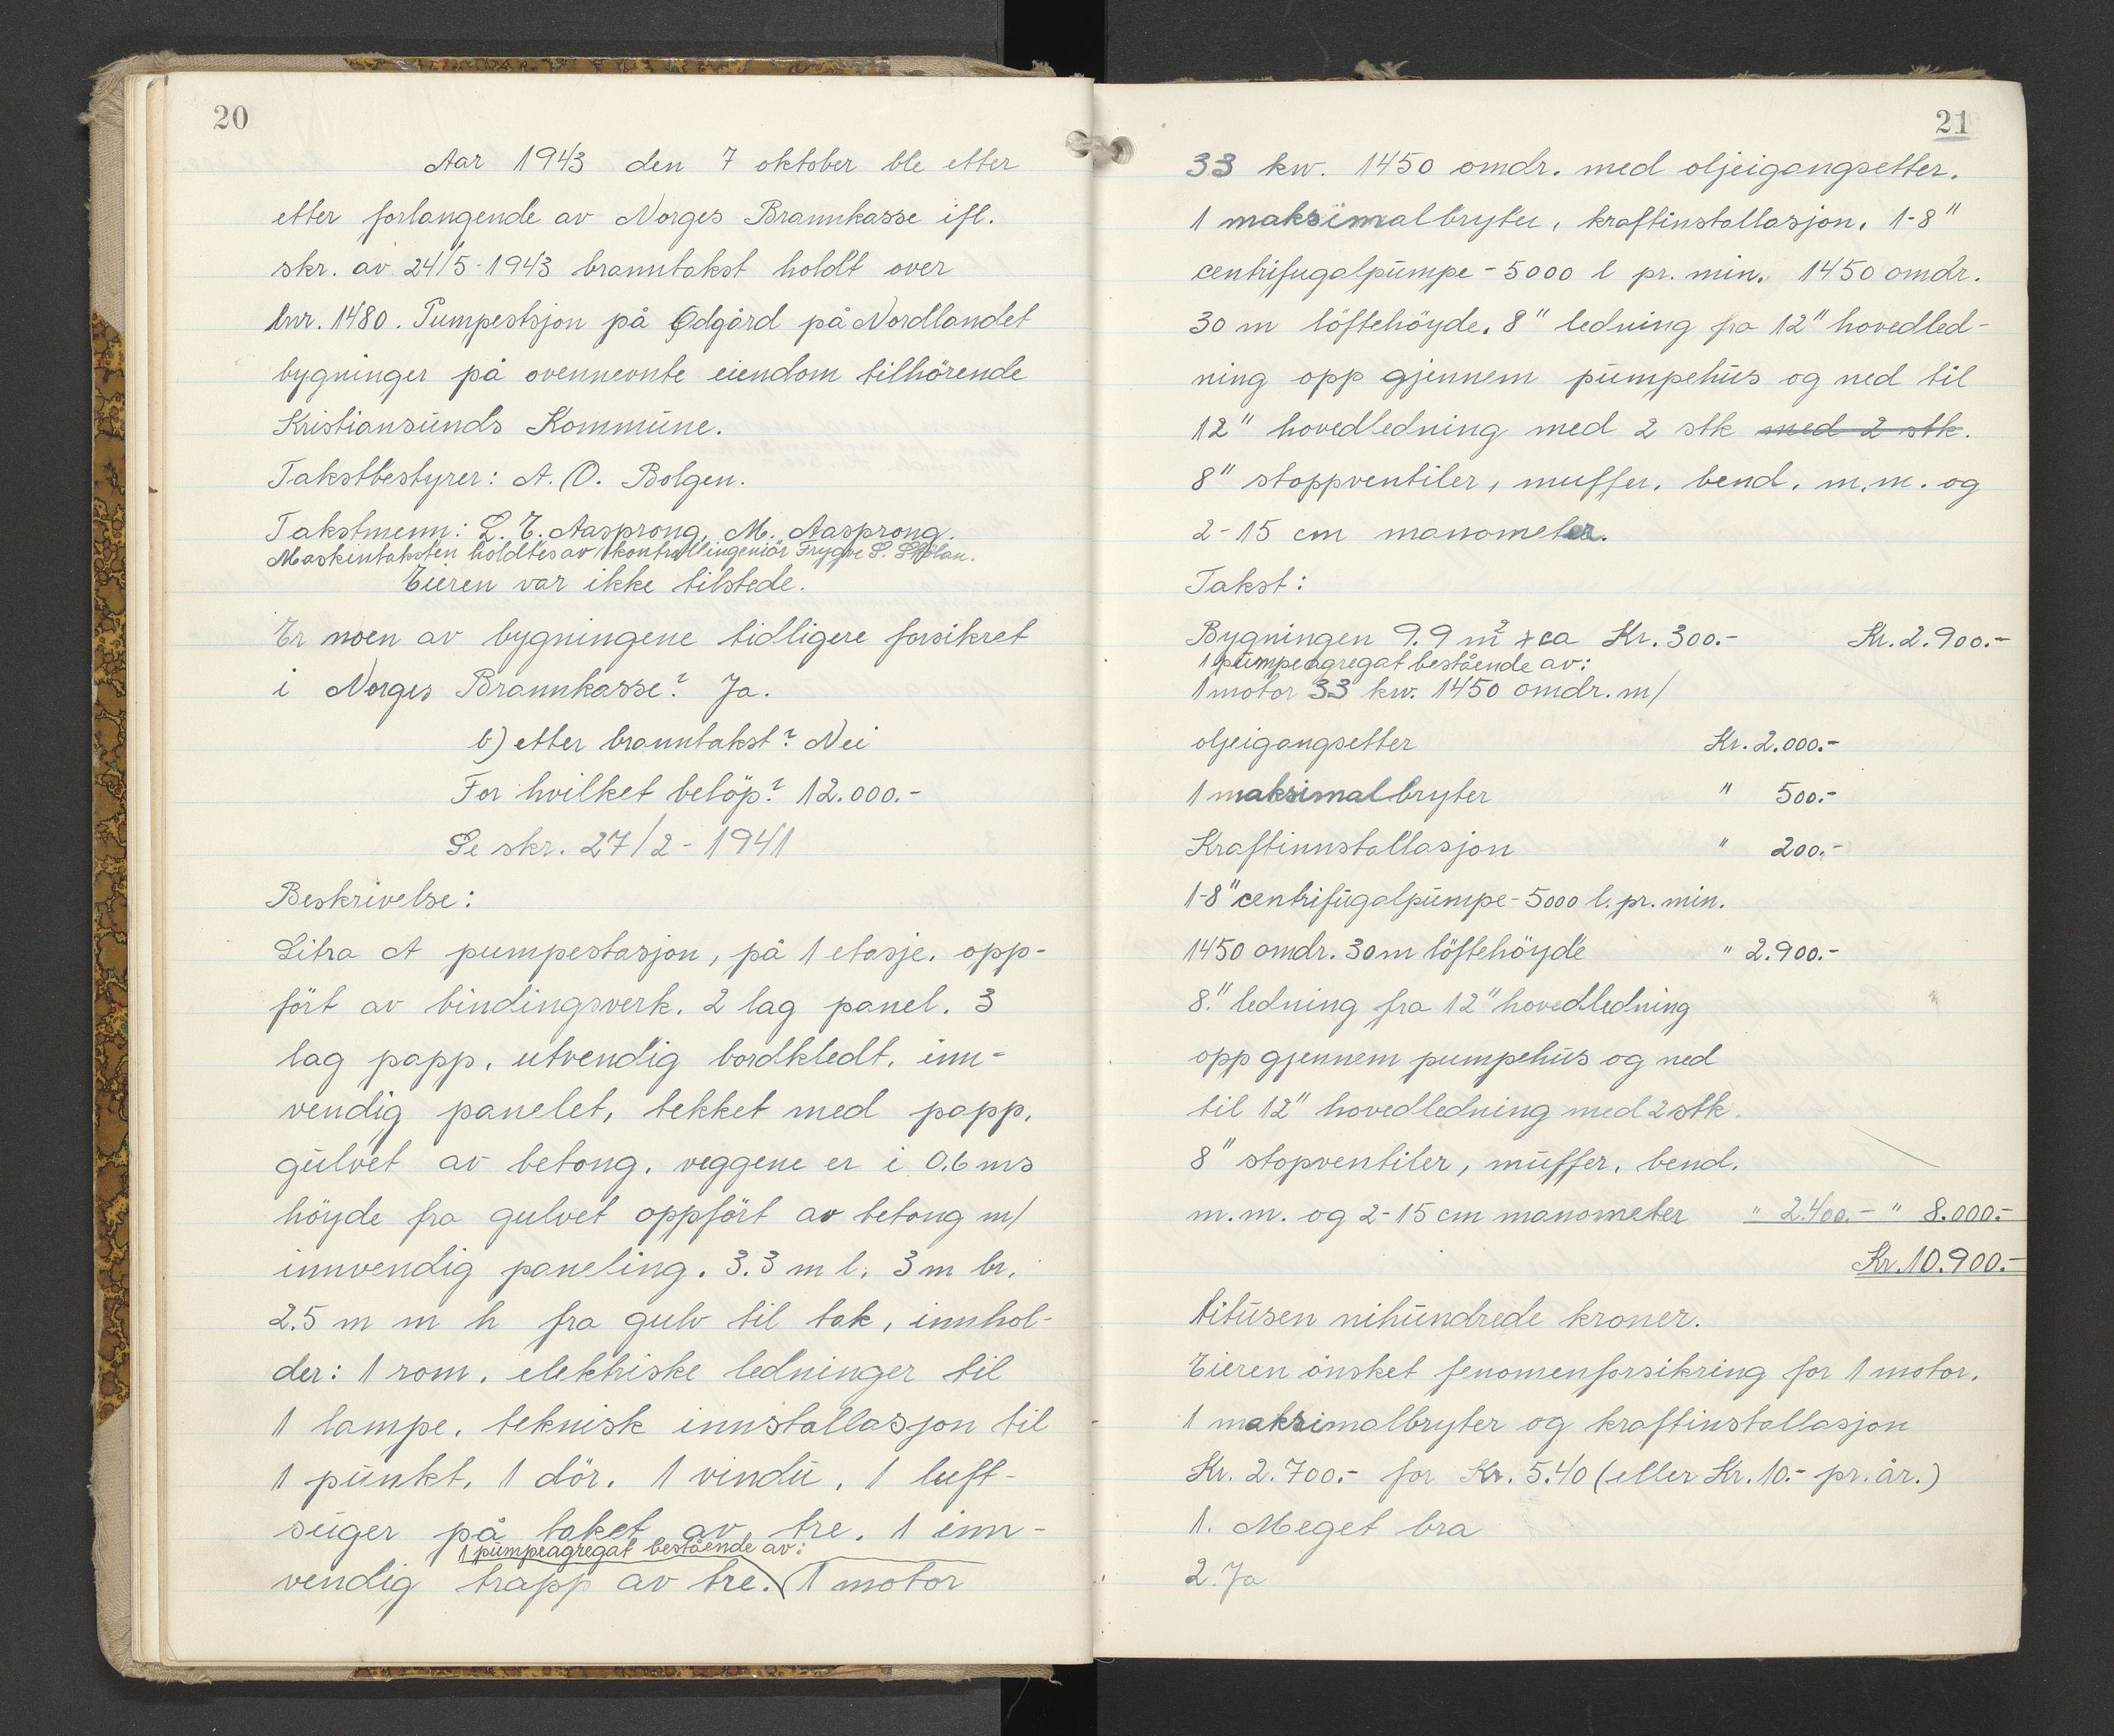 20
Aar 1943 den 7 oktober ble etter
etter forlangende av Norges Brannkasse ifl.
skr. av 24/5-1943 branntakst holdt over
lnr. 1480. Pumpestsjon på Ödgård på Nordlandet
bygninger på ovennevnte eiendom tilhörende
Kristiansunds Kommune.
Takstbestyrer: A. O. Bolgen.
Takstmenn: L. E. Aasprong, M. Aasprong.
Maskintaksten holdtes av kontrollingeniör Trygve S.
Eieren var ikke tilstede.
Er noen av bygningene tidligere forsikret
i Norges Brannkasse? Ja.
b) etter branntakst? Nei
For hvilket belöp? 12.000.-
Se skr. 27/2-1941
Beskrivelse:
Litra A pumpestasjon, på 1 etasje. opp-
fört av bindingsverk. 2 lag panel. 3
lag papp. utvendig bordkledt. inn-
vendig panelet, tekket med papp.
gulvet av betong. veggene er i 0.6 ms
höyde fra gulvet oppfört av betong m/
innvendig paneling. 3.3 m l. 3 m br.
2.5 m m h fra gulv til tak, innhol-
der: 1 rom. elektriske ledninger til
1 lampe. teknisk innstallasjon til
1 punkt. 1 dör. 1 vindu. 1 luft-
suger på taket av tre. 1 inn-
1 pumpeagregat bestående av:
vendig trapp av tre. 1 motor
21
33 kw. 1450 omdr. med oljeigangsetter.
1 maksimalbryter, kraftinstallasjon. 1-8"
centrifugalpumpe - 5000 l pr. min. 1450 omdr.
30 m löftehöyde. 8" ledning fra 12" hovedled-
ning opp gjennem pumpehus og ned til
12" hovedledning med 2 stk med 2 stk.
8" stoppventiler, muffer. bend. m.m. og
2-15 cm manometer.
Takst:
Bygningen 9.9 m² + ca Kr. 300.- Kr. 2.900.-
1 pumpeagregat bestående av:
1 motor 33 kw. 1450 omdr. m/
oljeigangsetter Kr. 2.000.-
1 maksimalbryter " 500.-
Kraftinnstallasjon " 200.-
1-8" centrifugalpumpe - 5000 l. pr. min.
1450 omdr. 30 m löftehöyde " 2.900.-
8." ledning fra 12" hovedledning
opp gjennem pumpehus og ned
til 12" hovedledning med 2 stk.
8" stopventiler, muffer. bend.
m.m. og 2-15 cm manometer " 2.400.- " 8.000.-
Kr. 10.900.-
titusen nihundrede kroner.
Eieren önsket fenomenforsikring for 1 motor.
1 maksimalbryter og kraftinstallasjon
Kr. 2.700.- for Kr. 5.40 (eller Kr. 10.- pr. år.)
1. Meget bra
2. Ja